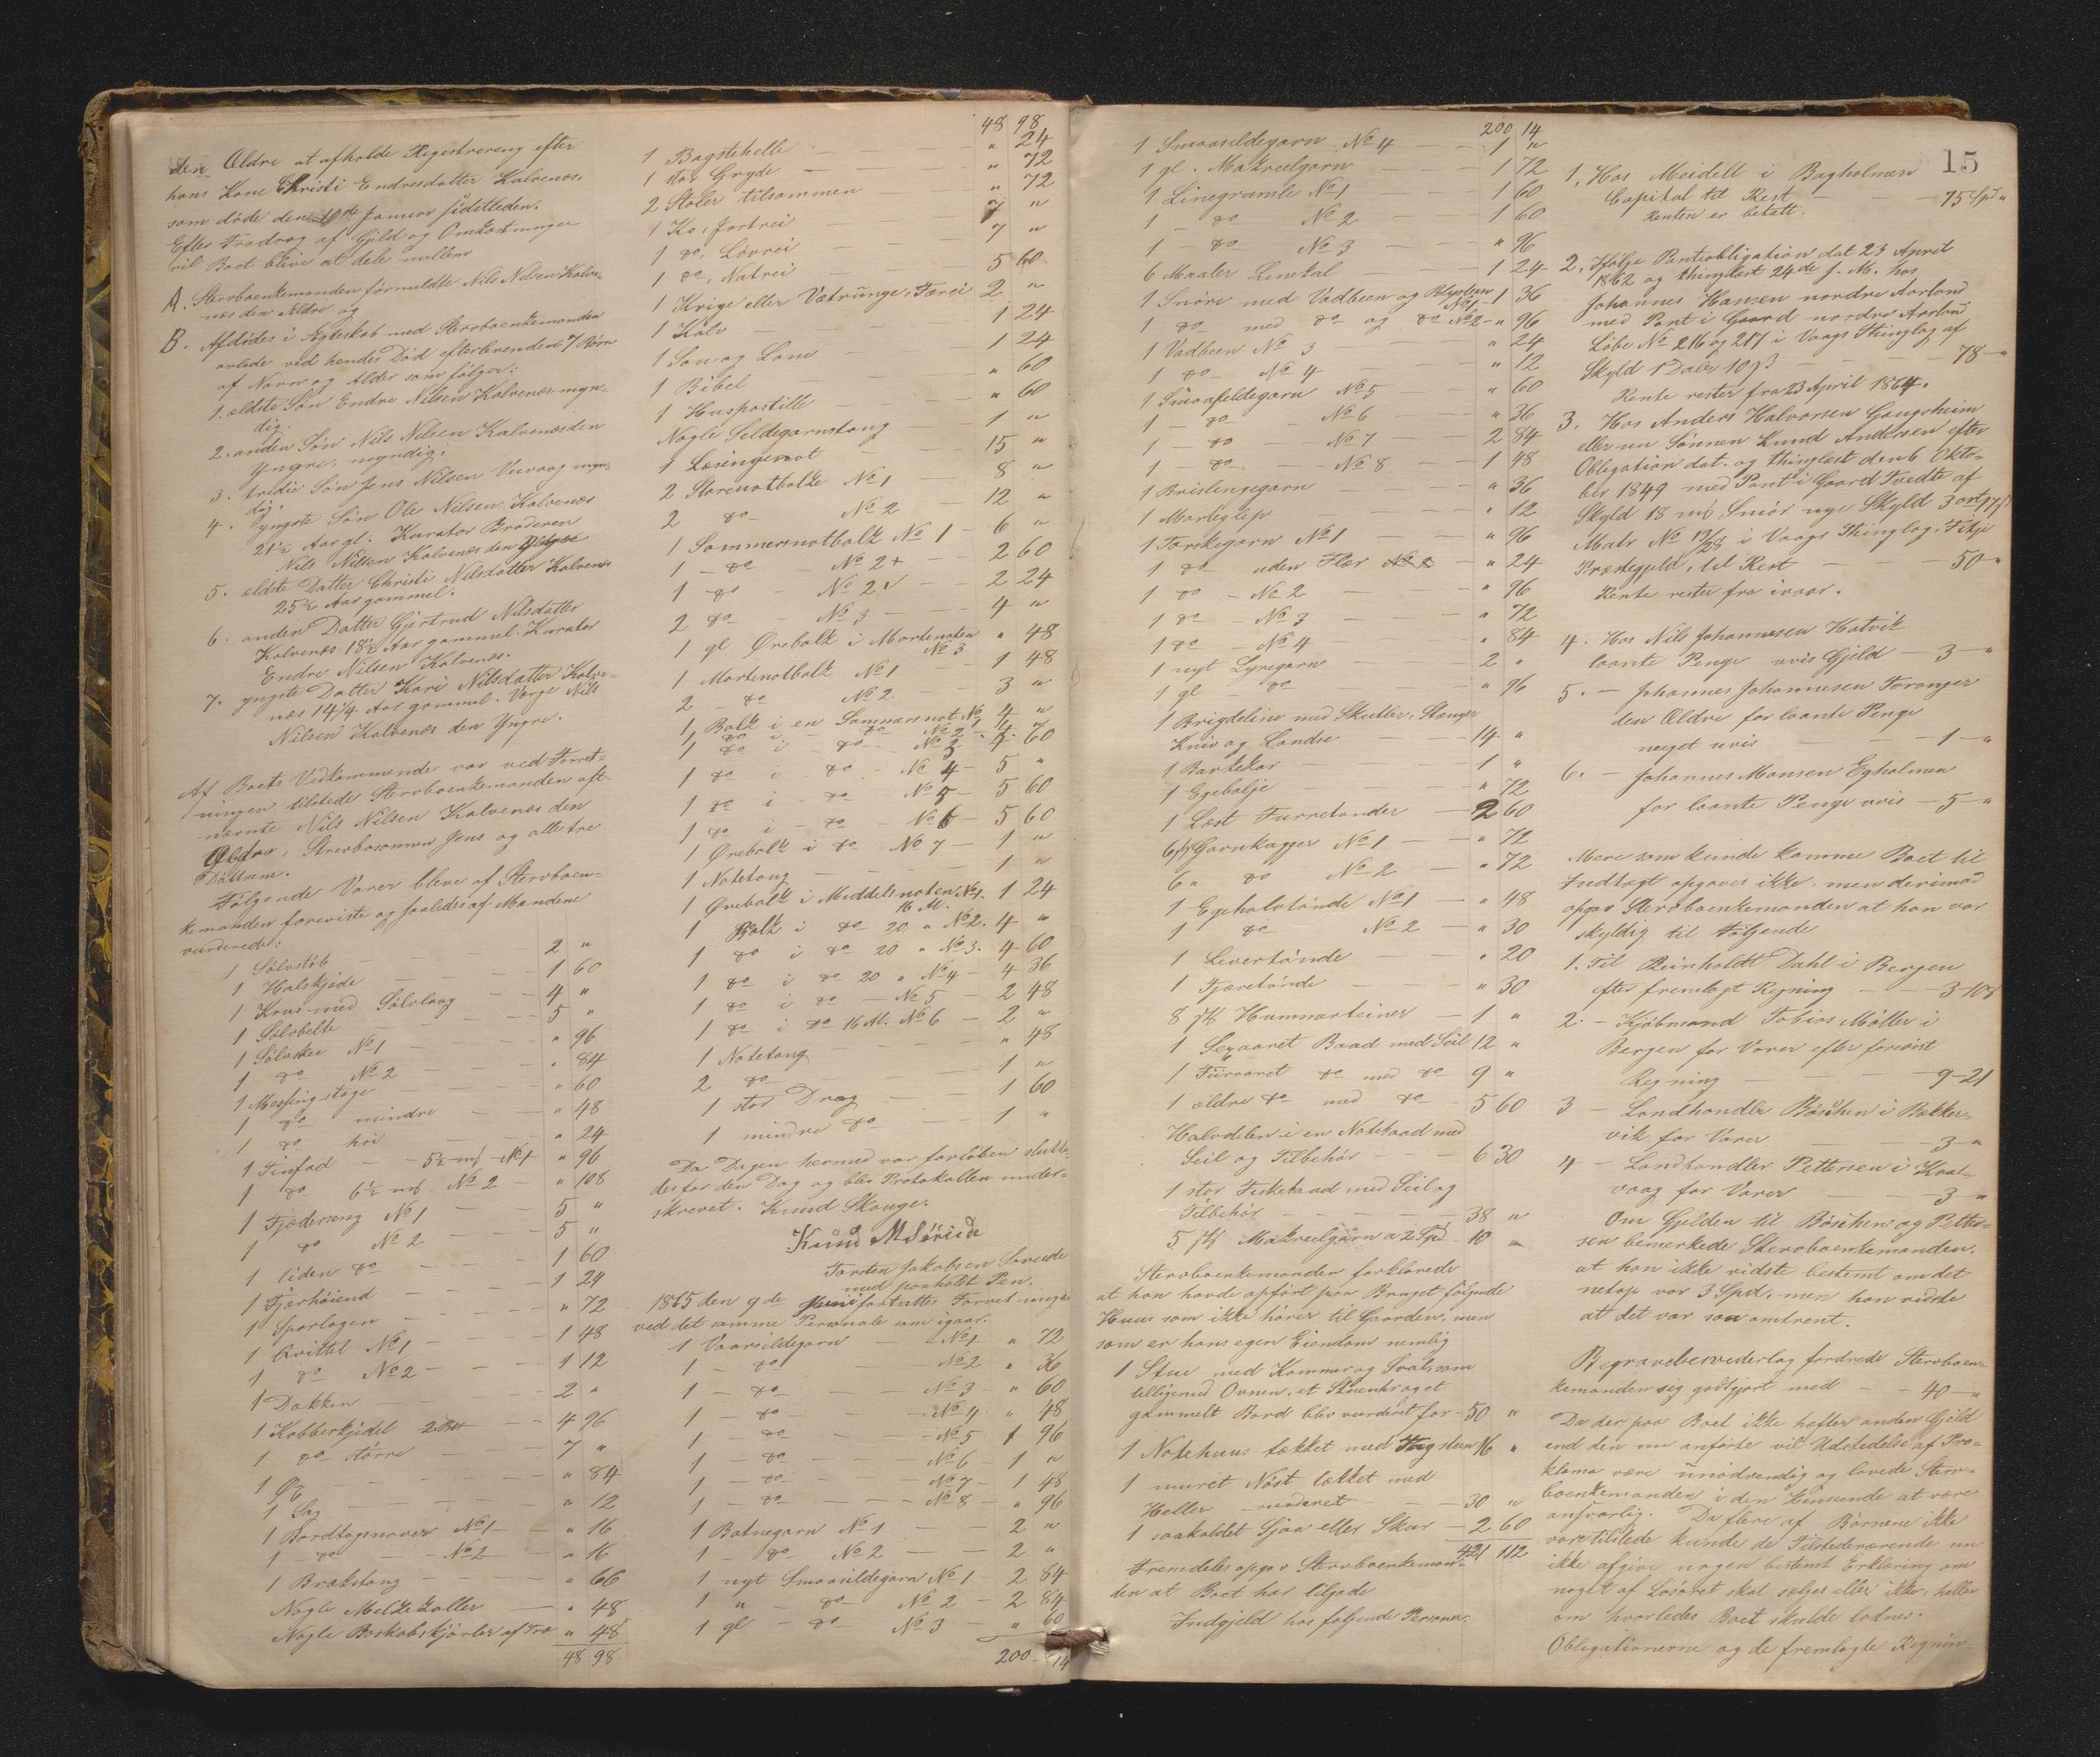 den Ældre at afholde Registrering efter
hans Kone Christi Endresdatter Kalvenæs,
som døde den 10de Januar sidstleden.
Efter Fradrag af Gjæld og Omkostninger
vil Boet blive at dele mellem
A. Stervboenkemanden førmeldte Nils Nilsen Kalve-
næs den Ældre og
B. Afdødes i Ægteskab med Stervboenkemanden
avlede ved hendes Død efterlevende 7 Børn
af Navn og Alder som følger:
1. ældste Søn Endre Nilsen Kalvenæs, myn-
dig.
2. anden Søn Nils Nilsen Kalvenæs den
Yngre, myndig.
3. tredie Søn Jens Nilsen Vervaag myn-
dig.
4. yngste Søn Ole Nilsen Kalvenæs
21½ Aar gl. Kurator Broderen
Nils Nilsen Kalvenæs den Yngre
5. ældste Datter Christi Nilsdatter Kalvenæs
25½ Aar gammel.
6. anden Datter Gjertrud Nilsdatter
Kalvenæs 18½ Aar gammel. Kurator
Endre Nilsen Kalvenæs.
7. yngste Datter Kari Nilsdatter Kalve-
næs 14¼ Aar gammel. Verge Nils
Nilsen Kalvenæs den Yngre.
Af Boets Vedkommende var ved Forret-
ningen tilstede Stervboenkemanden oft-
nævnte Nils Nilsen Kalvenæs den
Ældre, Stervbosønnen Jens og alle tre
Døttrene.
Følgende Varer bleve af Stervboen-
kemanden foreviste og saaledes af Mændene
vurderede:
1 Sølvstøb — 2 "
1 Halskjæde — 1 60
1 Krus med Sølvlaag — 4 "
1 Sølvbelte — 5 "
1 Sølvskee No 1 — " 96
1 do No 2 — " 84
1 Messingstage — " 60
1 do mindre — " 48
1 do høi — " 24
1 Tinfad — 5½ mk No 1 " 96
1 do 6½ mk No 2 — " 108
1 Fjæderseng No 1 — 5 "
1 do No 2 — 5 "
1 liden do — 1 60
1 Fjærhøiend — 1 24
1 Sparlagen — " 72
1 Qvittel No 1 — 1 48
1 do No 2 — 1 12
1 Dakken — 2 "
1 Kobberkjedel — 4 96
1 do større — 7 "
1 Øx — " 84
1 Sag — " 12
1 Bordtopnaver No 1 — " 16
1 do No 2 — " 16
1 Brækstang — " 66
Nogle Melkekoller — " 48
Nogle Boskabskjørler af Træ " 48
48 98
48 98
1 Bagstehelle — " 24
1 stor Gryde — " 72
2 Stoler tilsammen " 72
1 Ko, fortrei — 7 "
1 do, Løvrei — 7 "
1 do, Natrei — 5 60
1 Krige eller Vetrunge, Færei 2 "
1 Kalv — 1 24
1 Sau og Lam — 1 24
1 Bibel — " 60
1 Huspostille — " 60
Nogle Sildegarnstoug 1 "
1 Læsingenot — 15 "
2 Storenotbolk No 1 — 8 "
2 do No 2 12 "
1 Sommernotbolk No 1 — 6 "
1 — do — No 2+ 2 60
1 — do — No 2 — 2 24
2 do — No 3 — 4 "
1 gl Ørebolk i Mortenoten No 3 " 48
1 Mortenotbolk No 1 — 1 48
2 — do No 2 — 3 "
1 Bolk i en Sommernot No 1 4 "
1 do i — do — No 2 4 "
1 do i — do — No 3 4 60
1 do i — do — No 4 — 5 "
1 do i — do — No 5 — 5 60
1 do i — do — No 6 — 5 60
1 Ørebolk i do No 7 — 1 "
1 Notetoug — 1 "
1 Ørebolk i Middelsnoten 16 Al. No 1. 1 24
1 Bolk i do 20 " No 2. 4 "
1 do i do 20 " No 3. 4 60
1 do i do 20 " No 4 — 4 36
1 do i do — No 5 — 2 48
1 do i do 16 Al. No 6 — 2 "
1 Notetoug — " 48
2 do — 1 "
1 stor Drag — 1 60
1 mindre do — 1 "
Da Dagen hermed var forløben slutte-
des for den Dag og blev Protokollen under-
skrevet. Knud Skauge.
Knud M Søreide
Torsten Jakobsen Søreide
med paaholdt Pen.
1865 den 9de Juni fortsattes Forretningen
ved det samme Personale som igaar.
1 Vaarsildegarn — No 1 " 72
1 — do — No 2 " 36
1 — do — No 3 — " 60
1 — do — No 4 " 48
1 — do — No 5 1 96
1 — do — No 6 — 1 "
1 — do — No 7 — 1 48
1 — do — No 8 — " 96
1 Botnegarn No 1 — 2 "
1 — do — No 2 — 2 "
1 nyt Smaasildegarn No 1 — 2 84
1 " — do — No 2 — 2 84
1 gl — do — No 3 — " 60
200 — 14
200 14
1 Smaasildegarn No 4 — 1 "
1 gl. Makreelgarn — 1 72
1 Linegramle No 1 — 1 60
1 — do No 2 — 1 60
1 — do No 3 — " 96
6 Maaler Linekal — 1 24
1 Snøre med Vadbeen og Blysteen No 1 — 1 36
1 do med do og do No 2 — " 96
1 Vadbeen No 3 — " 24
1 — do — No 4 — " 12
1 Smaasildegarn No 5 — " 60
1 — do — No 6 — " 36
1 — do — No 7 — 2 84
1 — do — No 8 — 1 48
1 Brislingegarn — " 36
1 Morteglip — " 12
1 Torskegarn No 1 — " 96
1 do uden Flær — " 24
1 do — No 2 — " 96
1 do — No 3 — " 72
1 do — No 4 — " 84
1 nyt Lyregarn — 2 "
1 gl — do — " 96
1 Brigdeline med Skutler, Stænger
Kniv og Landse — 14 "
1 Barkekar — 1 "
1 Egebalje — " 72
1 Læst Furretønder — 2 60
6 st Garnkagger No 1 — " 72
6 " do No 2 — " 72
1 Egehalvtønde No 1 — " 48
1 do No 2 — " 30
1 Levertønde — " 20
1 Tjæretønde — " 30
8 st Hummerteiner — 1 "
1 Sexaaret Baad med Seil 12 "
1 Fiiraaret do med do 9 "
1 ældre do med do — 5 60
Halvdelen i en Notebaad med
Seil og Tilbehør — 6 30
1 stor Fiskebaad med Seil og
Tilbehør — 38 "
5 st Makreelgarn a 2 Spd 10 "
Stervboenkemanden forklarede
at han havde opført paa Bruget følgende
Huus som ikke hører til Gaarden, men
som er hans egen Eiendom nemlig
1 Stue med Kammer og Sval, som
tilligemed Ovnen, et Stuenhr og et
gammelt Bord blev vurderet for — 50 "
1 Notehuus tækket med Tagsteen 16 "
1 muret Nøst tækket med
Heller — vurderet — 30 "
1 saakaldet Sjaa eller Skur — 2 60
421 112
Fremdeles opgav Stervboenkeman-
den at Boet har tilgode
Indgjeld hos følgende Personer:
15
1, Hos Meidell i Bagholmen
Capital til Rest — 75 Spd "
Renten er betalt.
2, Ifølge Pantobligation dat 23 April
1862 og thinglæst 24de s. M. hos
Johannes Hansen nordre Aarland
med Pant i Gaard nordre Aarland
Løbe No 216 og 217 i Vaags Thinglag af
Skyld 1 Daler 10 ß — 78 — "
Rente rester fra 23 April 1864.
3, Hos Anders Halvorsen Gaugsheim
eller nu Sønnen Knud Andersen efter
Obligation dat. og thinglæst den 6 Okto-
ber 1849 med Pant i Gaard Tvedte af
Skyld 18 mk Smør nye Skyld 3 ort 17 ß
Matr No 19/28 i Vaags Thinglag, Fitje
Præstegjeld, til Rest — 50 — "
Rente rester fra ivaar.
4. Hos Nils Johannesen Hatvik
laante Penge uvis Gjeld — 3 — "
5. — Johannes Johannesen Toranger
den Ældre for laante Penge
meget uvis — 1 — "
6. — Johannes Monsen Egholmen
for laante Penge uvis — 5 — "
Mere som kunde komme Boet til
Indtægt opgaves ikke, men derimod
opgav Stervboenkemanden at han var
skyldig til Følgende
1. Til Reinholdt Dahl i Bergen
efter fremlagt Regning — 3-108
2. — Kjøbmand Tobias Møller i
Bergen for Varer efter forevist
Regning — 9-21
3 — Landhandler Bøschen i Bekker-
vik for Varer — 3 — "
4 — Landhandler Pettersen i Kaal-
vaag for Varer — 3 — "
Om Gjelden til Bøschen og Petter-
sen bemerkede Stervboenkemanden,
at han ikke vidste bestemt om det
netop var 3 Spd. men han vidste
at det var saa omtrent.
Begravelsesvederlag fordrede Stervboen-
kemanden sig godtgjort med — 40 — "
Da der paa Boet ikke hæfter anden Gjeld
end den nu anførte vil Udstedelse af Pro-
klama være unødvendig og lovede Sterv-
boenkemanden i den Henseende at være
ansvarlig. Da flere af Børnene ikke
vare tilstede kunde de Tilstedeværende nu
ikke afgive nogen bestemt Erklæring om
noget af Løsøret skal sælges eller ikke, heller
om hvorledes Boet skulde lodnes.
Obligationerne og de fremlagte Regnin-